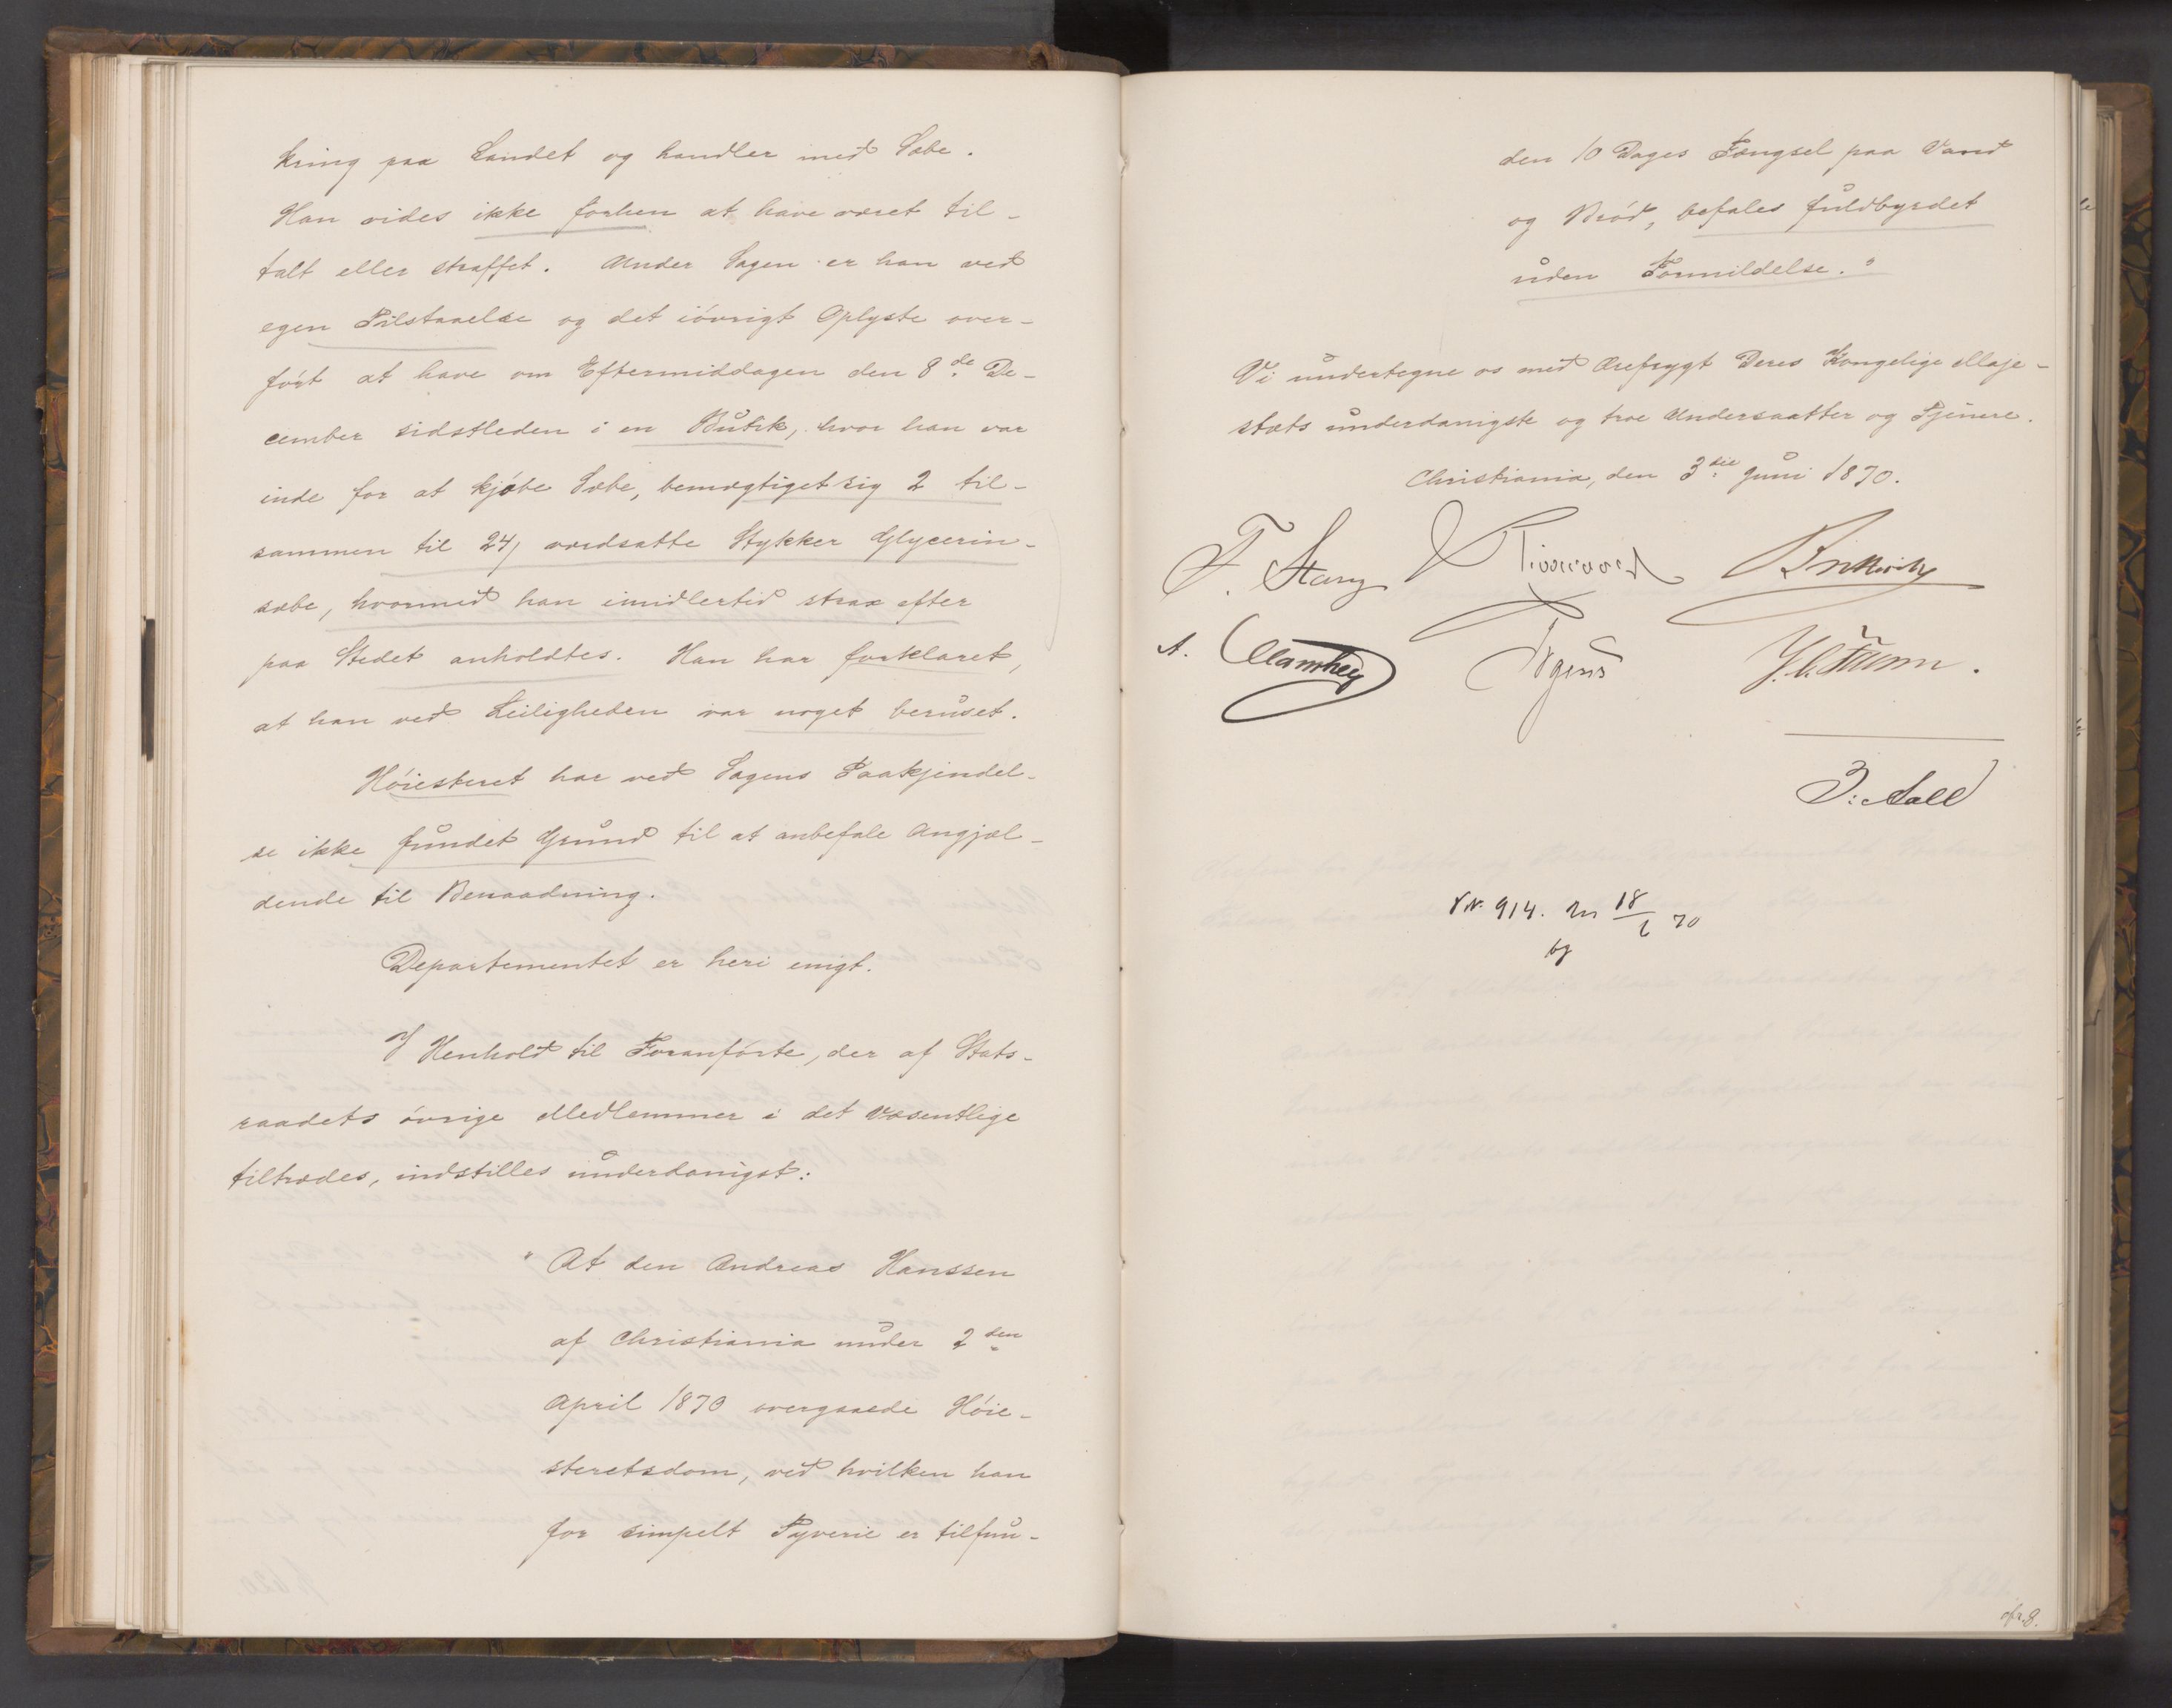 kring paa Landet og handler med Sæbe.
Han vides ikke forhen at have været til-
talt eller straffet. Under Sagen er han ved
egen Tilstaaelse og det iövrigt Oplyste over-
fört at have om Eftermiddagen den 8de De-
cember sidstleden i en Butik, hvor han var
inde for at kjöbe Sæbe, bemægtiget sig 2 til-
sammen til 24 / værdsatte Stykker Glycerin-
sæbe, hvormed han imidlertid strax efter
paa Stedet anholdtes. Han har forklaret,
at han ved Leiligheden var noget beruset.
Höiesteret har ved Sagens Paakjendel-
se ikke fundet Grund til at anbefale Angjæl-
dende til Benaadning.
Departementet er heri enigt.
I Henhold til Foranförte, der af Stats-
raadets övrige Medlemmer i det Væsentlige
tiltrædes, indstilles underdanigst:
" At den Andreas Hanssen
af Christiania under 2den
April 1870 overgaaede Höie-
steretsdom, ved hvilken han
for simpelt Tyverie er tilfun-
den 10 Dages Fængsel paa Vand
og Bröd, befales fuldbyrdet
uden Formildelse."
Vi undertegne os med Ærefrygt Deres Kongelige Maje-
stæts underdanigste og troe Undersaatter og Tjenere.
Christiania, den 3die Juni 1870.
F. Stang
A. Manthey
J. Aall
No 914. 18/6 70